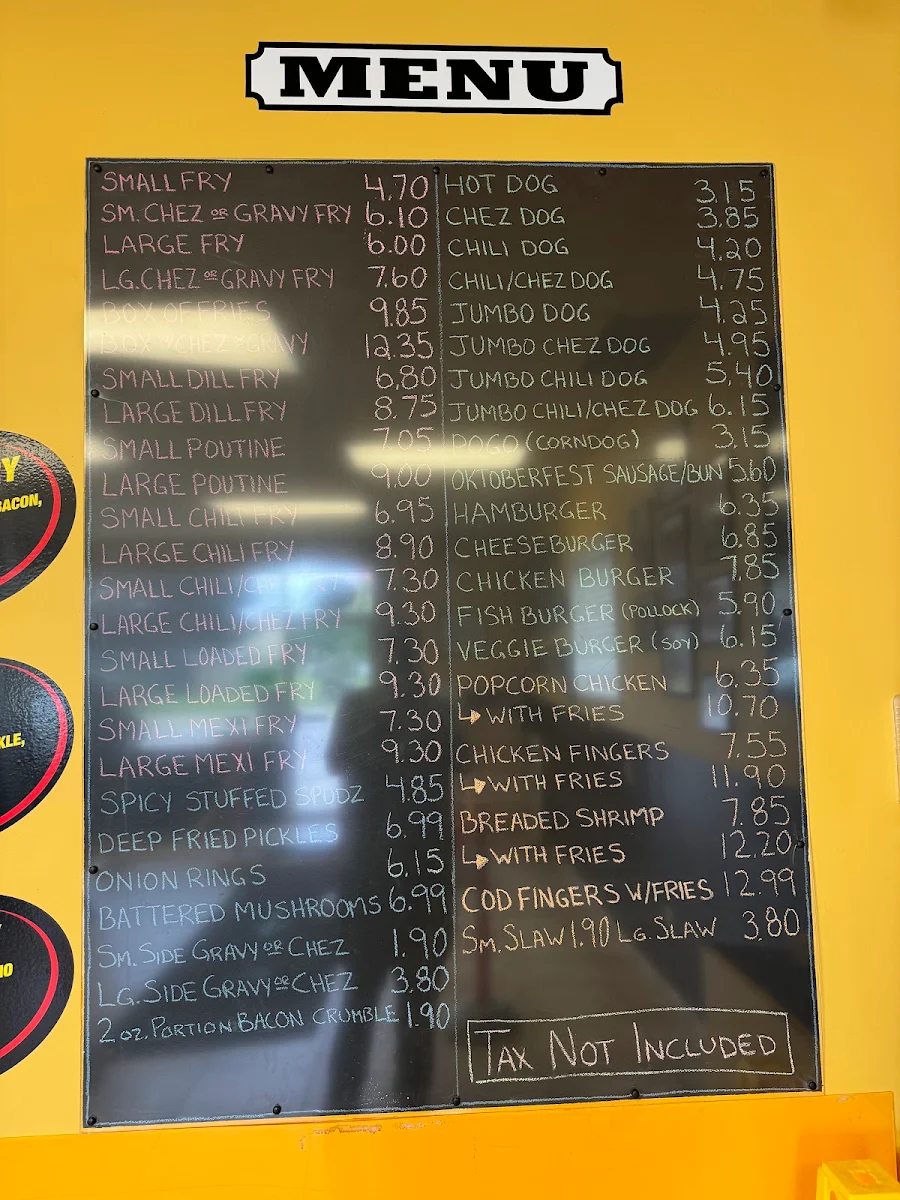 MENU
SMALL FRY 4.70
SM. CHEZ OR GRAVY FRY 6.10
LARGE FRY 6.00
LG. CHEZ OR GRAVY FRY 7.60
BOX OF FRIES 9.85
BOX W/ CHEZ OR GRAVY 12.35
SMALL DILL FRY 6.80
LARGE DILL FRY 8.75
SMALL POUTINE 7.05
LARGE POUTINE 9.00
SMALL CHILI FRY 6.95
LARGE CHILI FRY 8.90
SMALL CHILI/CHEZ FRY 7.30
LARGE CHILI/CHEZ FRY 9.30
SMALL LOADED FRY 7.30
LARGE LOADED FRY 9.30
SMALL MEXI FRY 7.30
LARGE MEXI FRY 9.30
SPICY STUFFED SPUDZ 4.85
DEEP FRIED PICKLES 6.99
ONION RINGS 6.15
BATTERED MUSHROOMS 6.99
SM. SIDE GRAVY OR CHEZ 1.90
LG. SIDE GRAVY OR CHEZ 3.80
2 OZ. PORTION BACON CRUMBLE 1.90
HOT DOG 3.15
CHEZ DOG 3.85
CHILI DOG 4.20
CHILI/CHEZ DOG 4.75
JUMBO DOG 4.25
JUMBO CHEZ DOG 4.95
JUMBO CHILI DOG 5.40
JUMBO CHILI/CHEZ DOG 6.15
POGO (CORNDOG) 3.15
OKTOBERFEST SAUSAGE/BUN 5.60
HAMBURGER 6.35
CHEESEBURGER 6.85
CHICKEN BURGER 7.85
FISH BURGER (POLLOCK) 5.90
VEGGIE BURGER (SOY) 6.15
POPCORN CHICKEN 6.35
↳ WITH FRIES 10.70
CHICKEN FINGERS 7.55
↳ WITH FRIES 11.90
BREADED SHRIMP 7.85
↳ WITH FRIES 12.20
COD FINGERS W/FRIES 12.99
SM. SLAW 1.90 LG. SLAW 3.80
TAX NOT INCLUDED
Y
BACON,
KLE,